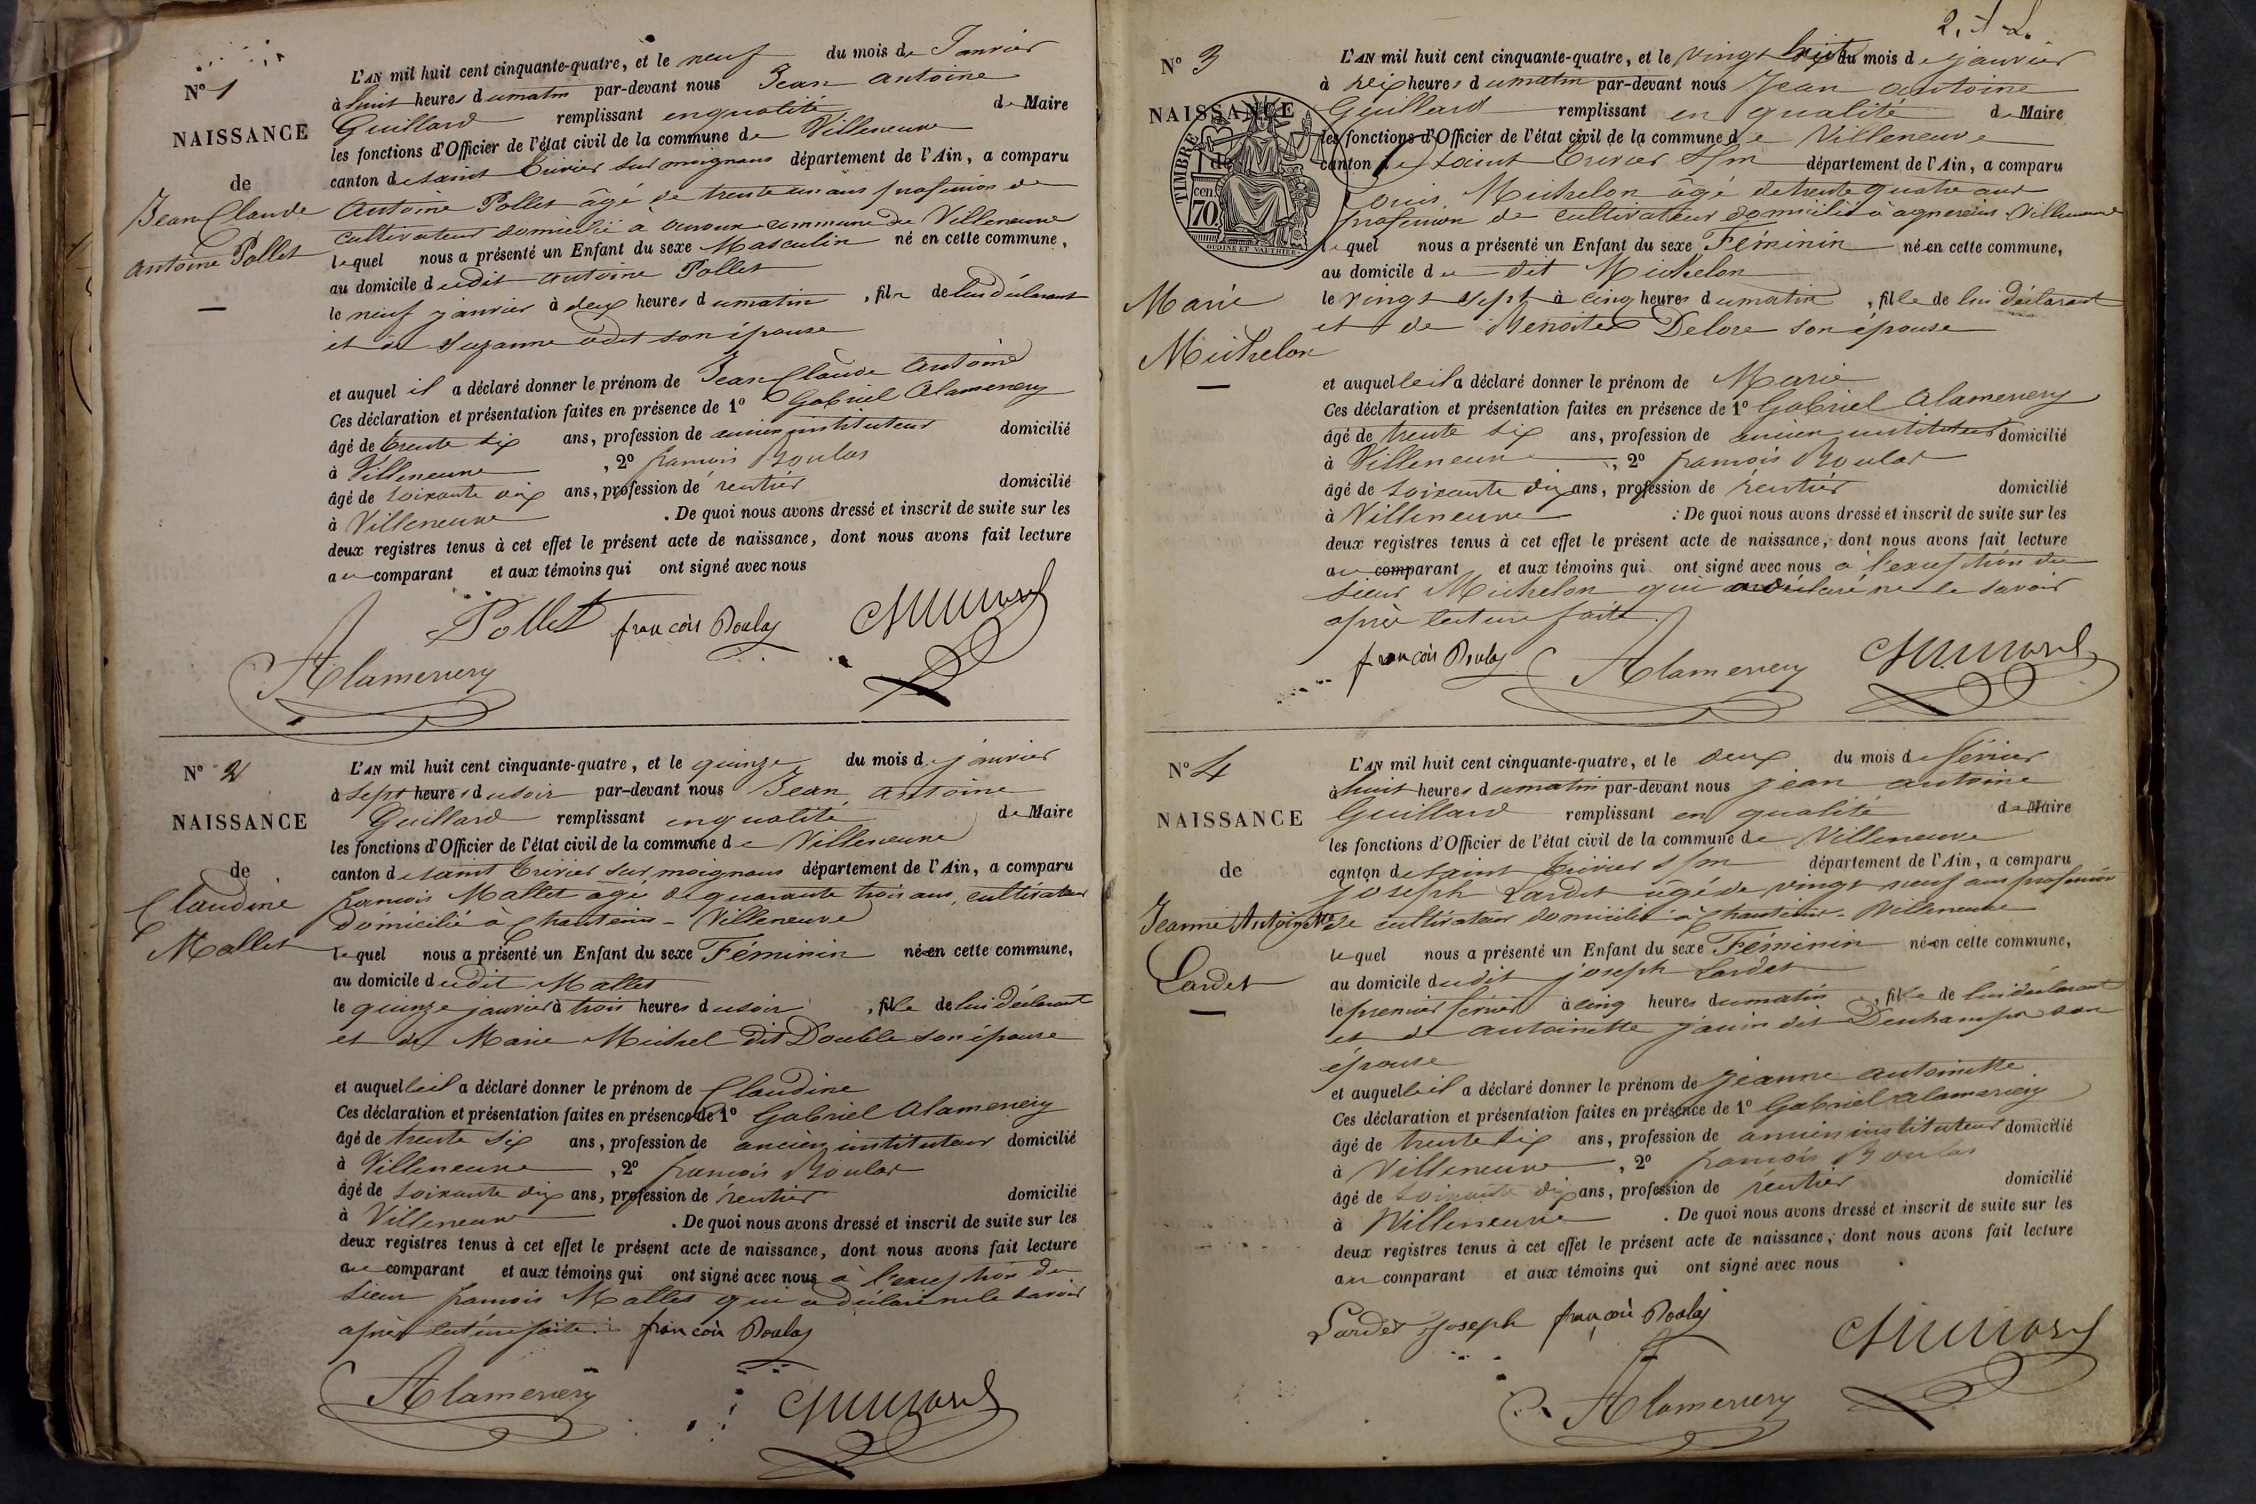 N° 1
NAISSANCE
de
Jean Claude
Antoine Pollet
L'AN mil huit cent cinquante-quatre, et le neuf du mois de Janvier
à huit heures du matin par-devant nous Jean antoine
Guillard remplissant en qualité de Maire
les fonctions d'Officier de l'état civil de la commune de Villeneuve
canton de saint Trivier sur moignans département de l'Ain, a comparu
Antoine Pollet âgé de trente un ans profession de
cultivateur domicilié à commune de Villeneuve
lequel nous a présenté un Enfant du sexe Masculin né en cette commune,
au domicile dudit antoine Pollet
le neuf janvier à deux heures du matin, fils de lui déclarant
et de Suzanne odet son épouse
et auquel il a déclaré donner le prénom de Jean Claude Antoine
Ces déclaration et présentation faites en présence de 1° Gabriel Alamercery
âgé de trente six ans, profession de ancien instituteur domicilié
à Villeneuve, 2° francois Boulas
âgé de soixante dix ans, profession de rentier domicilié
à Villeneuve. De quoi nous avons dressé et inscrit de suite sur les
deux registres tenus à cet effet le présent acte de naissance, dont nous avons fait lecture
au comparant et aux témoins qui ont signé avec nous
Pollet françois Boulas
Alamercery
N° 2
NAISSANCE
de
Claudine
Mallet
L'AN mil huit cent cinquante-quatre, et le quinze du mois de janvier
à sept heures du soir par-devant nous Jean antoine
Guillard remplissant en qualité de Maire
les fonctions d'Officier de l'état civil de la commune de Villeneuve
canton de saint Trivier sur moignans département de l'Ain, a comparu
francois Mallet âgé de quarante trois ans, cultivateur
domicilié à Chanteins - Villeneuve
lequel nous a présenté un Enfant du sexe Féminin née en cette commune,
au domicile dudit Mallet
le quinze janvier à trois heures du soir, fille de lui déclarant
et de Marie Michel dit Double son épouse
et auquelle il a déclaré donner le prénom de Claudine
Ces déclaration et présentation faites en présence de 1° Gabriel Alamercery
âgé de trente six ans, profession de ancien instituteur domicilié
à Villeneuve, 2° francois Boulas
âgé de soixante dix ans, profession de rentier domicilié
à Villeneuve. De quoi nous avons dressé et inscrit de suite sur les
deux registres tenus à cet effet le présent acte de naissance, dont nous avons fait lecture
au comparant et aux témoins qui ont signé avec nous à l'exception du
sieur francois Mallet qui a déclaré ne le savoir
après lecture faite. françois Boulas
Alamercery
N° 3
NAISSANCE
de
TIMBRE
cen 70
OUDINE ET VAUTHIER
Marie
Michelon
L'AN mil huit cent cinquante-quatre, et le vingt huit du mois de janvier
à dix heures du matin par-devant nous Jean antoine
Guillard remplissant en qualité de Maire
les fonctions d'Officier de l'état civil de la commune de Villeneuve
canton de saint Trivier s/m département de l'Ain, a comparu
Louis Michelon âgé de trente quatre ans
profession de cultivateur domicilié à agnereins Villeneuve
lequel nous a présenté un Enfant du sexe Féminin née en cette commune,
au domicile du dit Michelon
le vingt sept à cinq heures du matin, fille de lui déclarant
et de Benoite Delore son épouse
et auquelle il a déclaré donner le prénom de Marie
Ces déclaration et présentation faites en présence de 1° Gabriel Alamercery
âgé de trente six ans, profession de ancien instituteur domicilié
à Villeneuve, 2° francois Boulas
âgé de soixante dix ans, profession de rentier domicilié
à Villeneuve : De quoi nous avons dressé et inscrit de suite sur les
deux registres tenus à cet effet le présent acte de naissance, dont nous avons fait lecture
au comparant et aux témoins qui ont signé avec nous à l'exception du
sieur Michelon qui a déclaré ne le savoir
après lecture faite.
françois Boulas Alamercery
N° 4
NAISSANCE
de
Jeanne Antoinette
Lardet
L'AN mil huit cent cinquante-quatre, et le deux du mois de février
à huit heures du matin par-devant nous jean antoine
Guillard remplissant en qualité de Maire
les fonctions d'Officier de l'état civil de la commune de Villeneuve
canton de saint Trivier s/m département de l'Ain, a comparu
joseph Lardet âgé de vingt neuf ans profession
de cultivateur domicilié à Chanteins - Villeneuve
lequel nous a présenté un Enfant du sexe Féminin née en cette commune,
au domicile dudit joseph Lardet
le premier février à cinq heures du matin, fille de lui déclarant
et de antoinette janin dit Deschamps son
épouse
et auquelle il a déclaré donner le prénom de jeanne antoinette
Ces déclaration et présentation faites en présence de 1° Gabriel Alamercery
âgé de trente six ans, profession de ancien instituteur domicilié
à Villeneuve, 2° francois Boulas
âgé de soixante dix ans, profession de rentier domicilié
à Villeneuve. De quoi nous avons dressé et inscrit de suite sur les
deux registres tenus à cet effet le présent acte de naissance, dont nous avons fait lecture
au comparant et aux témoins qui ont signé avec nous
Lardet Joseph françois Boulas
Alamercery